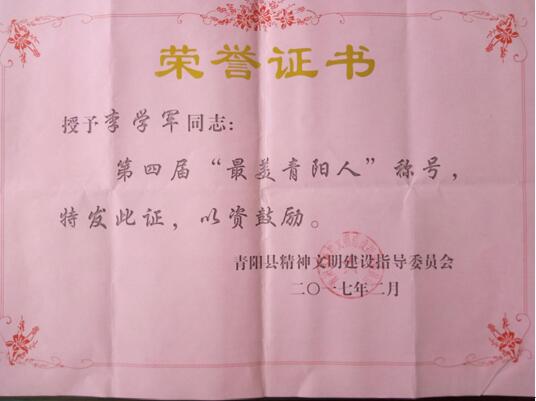 荣誉证书
授予李学军同志：
第四届“最美青阳人”称号，
特发此证，以资鼓励。
青阳县精神文明建设指导委员会
二〇一七年二月